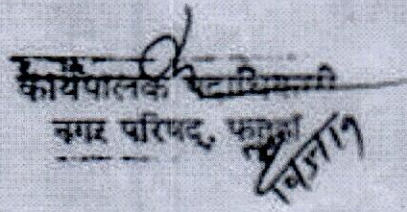 कार्यपालक पदाधिकारी
नगर परिषद्, फतुहा